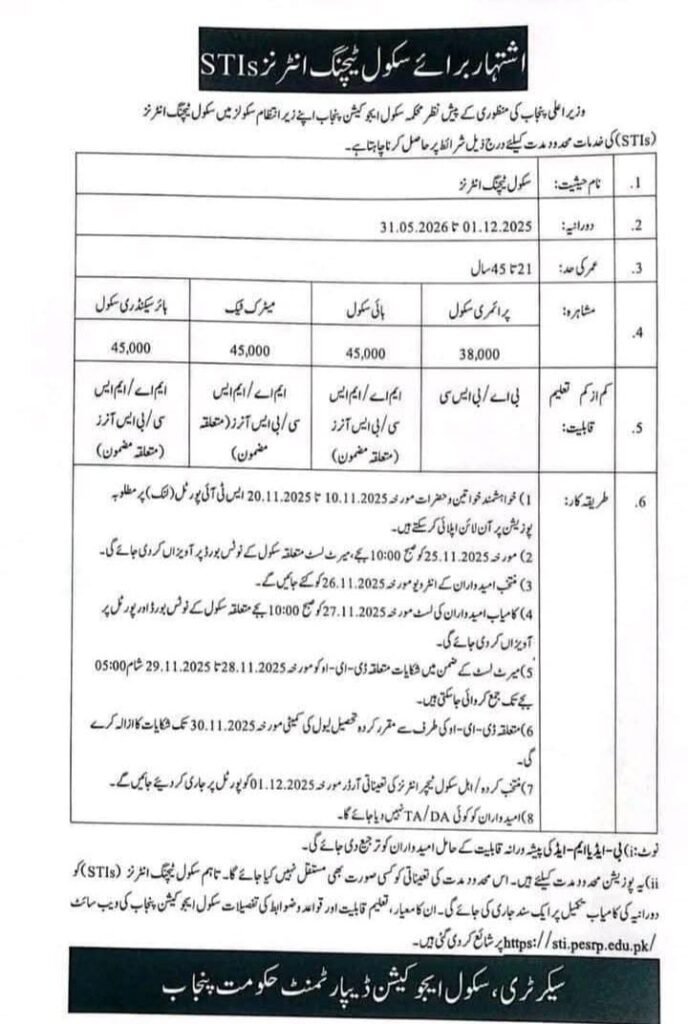 اشتہار برائے سکول ٹیچنگ انٹرنز STIs
وزیر اعلیٰ پنجاب کی منظوری کے پیش نظر محکمہ سکول ایجوکیشن پنجاب اپنے زیر انتظام سکولز میں سکول ٹیچنگ انٹرنز
(STIs) کی خدمات محدود مدت کیلئے درج ذیل شرائط پر حاصل کرنا چاہتا ہے۔
1. نام حیثیت: سکول ٹیچنگ انٹرنز
2. دورانیہ: 01.12.2025 تا 31.05.2026
3. عمر کی حد: 21 تا 45 سال
4. مشاہرہ: پرائمری سکول ہائی سکول میٹرک ٹیک ہائر سیکنڈری سکول
38,000 45,000 45,000 45,000
5. کم از کم تعلیم بی اے/بی ایس سی ایم اے/ایم ایس ایم اے/ایم ایس ایم اے/ایم ایس
قابلیت: سی/بی ایس آنرز سی/بی ایس آنرز (متعلقہ سی/بی ایس آنرز
(متعلقہ مضمون) مضمون) (متعلقہ مضمون)
6. طریقہ کار: 1) خواہشمند خواتین و حضرات مورخہ 10.11.2025 تا 20.11.2025 ایس ٹی آئی پورٹل (لنک) پر مطلوبہ
پوزیشن پر آن لائن اپلائی کر سکتے ہیں۔
2) مورخہ 25.11.2025 کو صبح 10:00 بجے، میرٹ لسٹ متعلقہ سکول کے نوٹس بورڈ پر آویزاں کر دی جائے گی۔
3) منتخب امیدواران کے انٹرویو مورخہ 26.11.2025 کو کئے جائیں گے۔
4) کامیاب امیدواران کی لسٹ مورخہ 27.11.2025 کو صبح 10:00 بجے متعلقہ سکول کے نوٹس بورڈ اور پورٹل پر
آویزاں کر دی جائے گی۔
5) میرٹ لسٹ کے ضمن میں شکایات متعلقہ ڈی-ای-او کو مورخہ 28.11.2025 تا 29.11.2025 شام 05:00
بجے تک جمع کروائی جا سکتی ہیں۔
6) متعلقہ ڈی-ای-او کی طرف سے مقرر کردہ تحصیل لیول کی کمیٹی مورخہ 30.11.2025 تک شکایات کا ازالہ کرے
گی۔
7) منتخب کردہ/اہل سکول ٹیچر انٹرنز کی تعیناتی آرڈر مورخہ 01.12.2025 کو پورٹل پر جاری کر دیئے جائیں گے۔
8) امیدواران کو کوئی TA/DA نہیں دیا جائے گا۔
نوٹ: i) بی-ایڈ یا ایم-ایڈ کی پیشہ ورانہ قابلیت کے حامل امیدواران کو ترجیح دی جائے گی۔
ii) یہ پوزیشن محدود مدت کیلئے ہیں۔ اس محدود مدت کی تعیناتی کو کسی صورت بھی مستقل نہیں کیا جائے گا۔ تاہم سکول ٹیچنگ انٹرنز (STIs) کو
دورانیہ کی کامیاب تکمیل پر ایک سند جاری کی جائے گی۔ ان کا معیار، تعلیم قابلیت اور قواعد و ضوابط کی تفصیلات سکول ایجوکیشن پنجاب کی ویب سائٹ
https://sti.pesrp.edu.pk/ پر شائع کر دی گئی ہیں۔
سیکرٹری، سکول ایجوکیشن ڈیپارٹمنٹ حکومت پنجاب